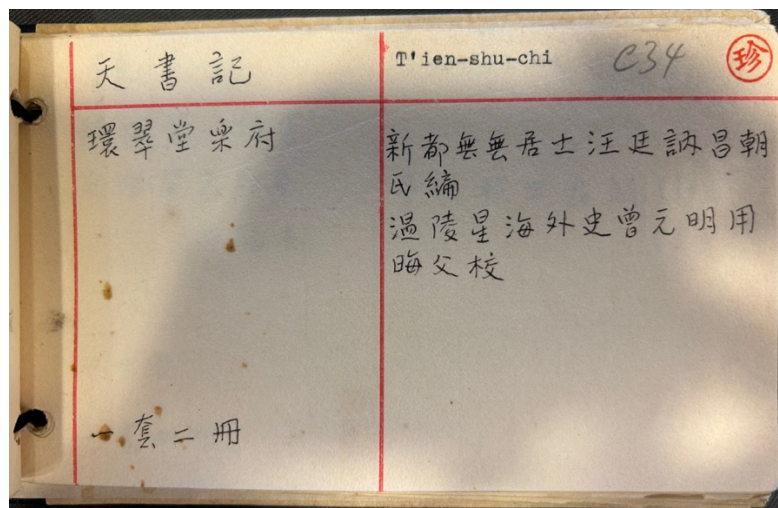 天書記
T'ien-shu-chi
C34
珍
環翠堂樂府
新都無無居士汪廷訥昌朝
氏編
溫陵星海外史曾元明用
晦父校
一套二冊